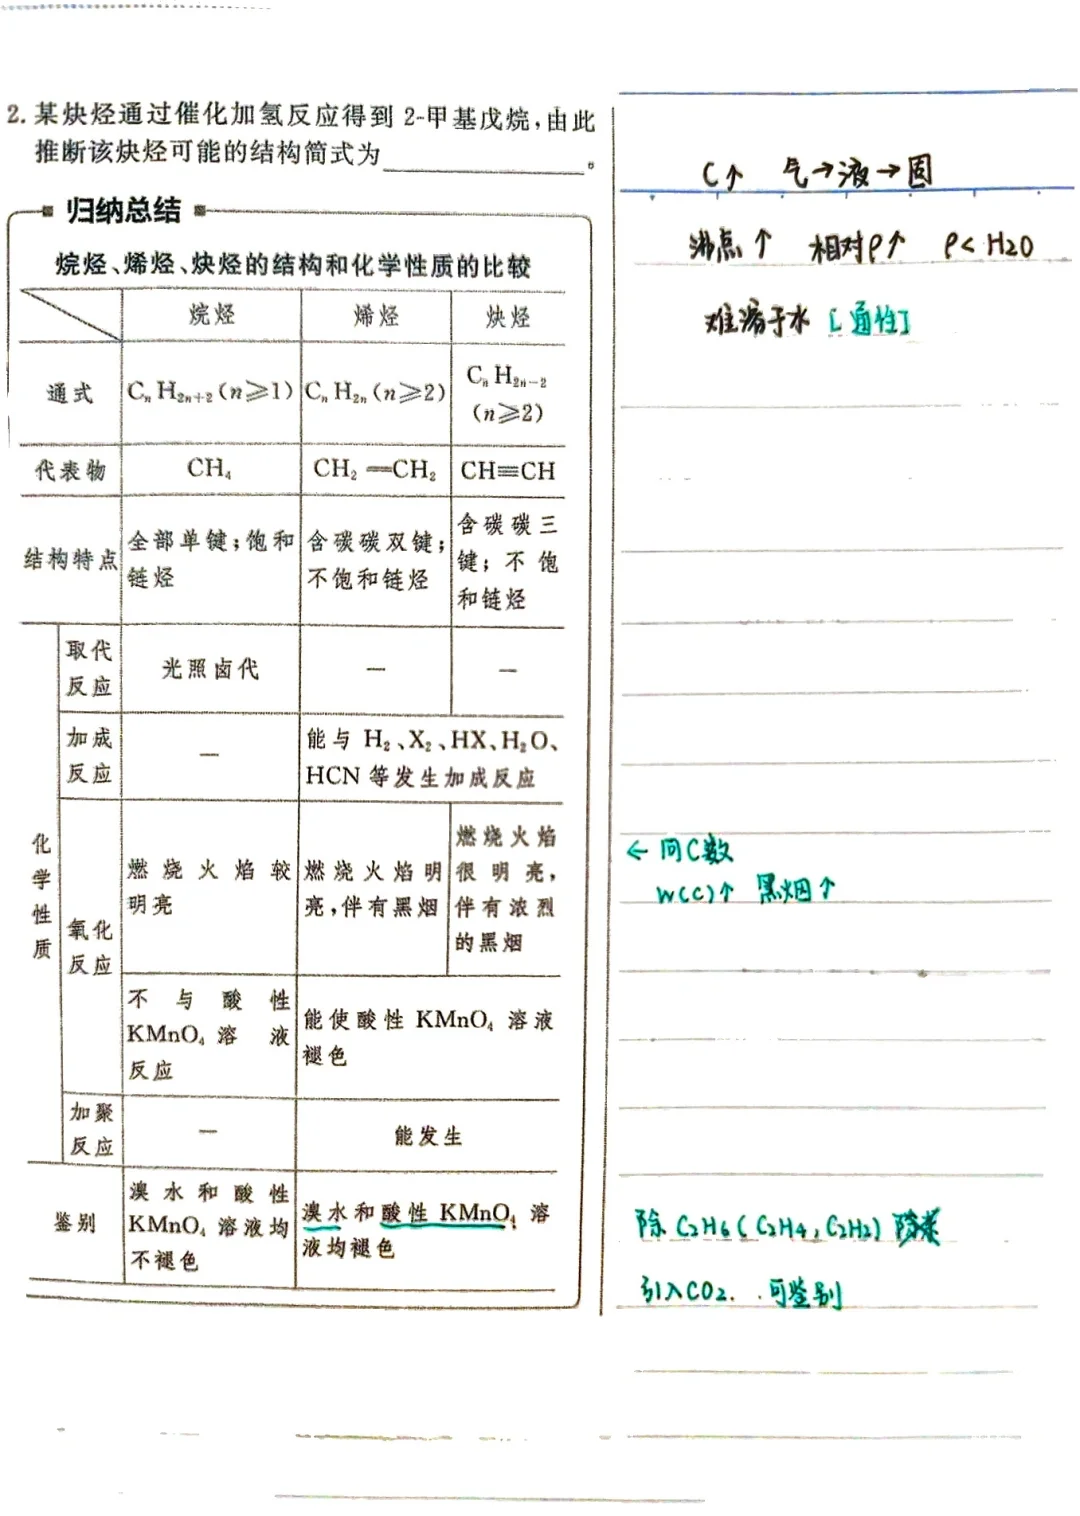 2. 某炔烃通过催化加氢反应得到 2-甲基戊烷,由此
推断该炔烃可能的结构简式为____________。
归纳总结
烷烃、烯烃、炔烃的结构和化学性质的比较
烷烃 烯烃 炔烃
通式
CₙH₂ₙ₊₂(n⩾1)
CₙH₂ₙ(n⩾2)
CₙH₂ₙ₋₂
(n⩾2)
代表物 CH₄ CH₂═CH₂ CH≡CH
结构特点
全部单键;饱和
链烃
含碳碳双键;
不饱和链烃
含碳碳三
键;不饱
和链烃
化
学
性
质
取代
反应
光照卤代
—
—
加成
反应
—
能与 H₂、X₂、HX、H₂O、
HCN 等发生加成反应
氧化
反应
燃烧火焰较
明亮
燃烧火焰明
亮,伴有黑烟
燃烧火焰
很明亮,
伴有浓烈
的黑烟
不与酸性
KMnO₄ 溶液
反应
能使酸性 KMnO₄ 溶液
褪色
加聚
反应
—
能发生
鉴别
溴水和酸性
KMnO₄ 溶液均
不褪色
溴水和酸性 KMnO₄ 溶
液均褪色
C↑ 气→液→固
沸点↑ 相对ρ↑ ρ< H2O
难溶于水 [通性]
← 同C数
w(C)↑ 黑烟↑
除 C2H6 ( C2H4, C2H2)
引入CO2. 可鉴别